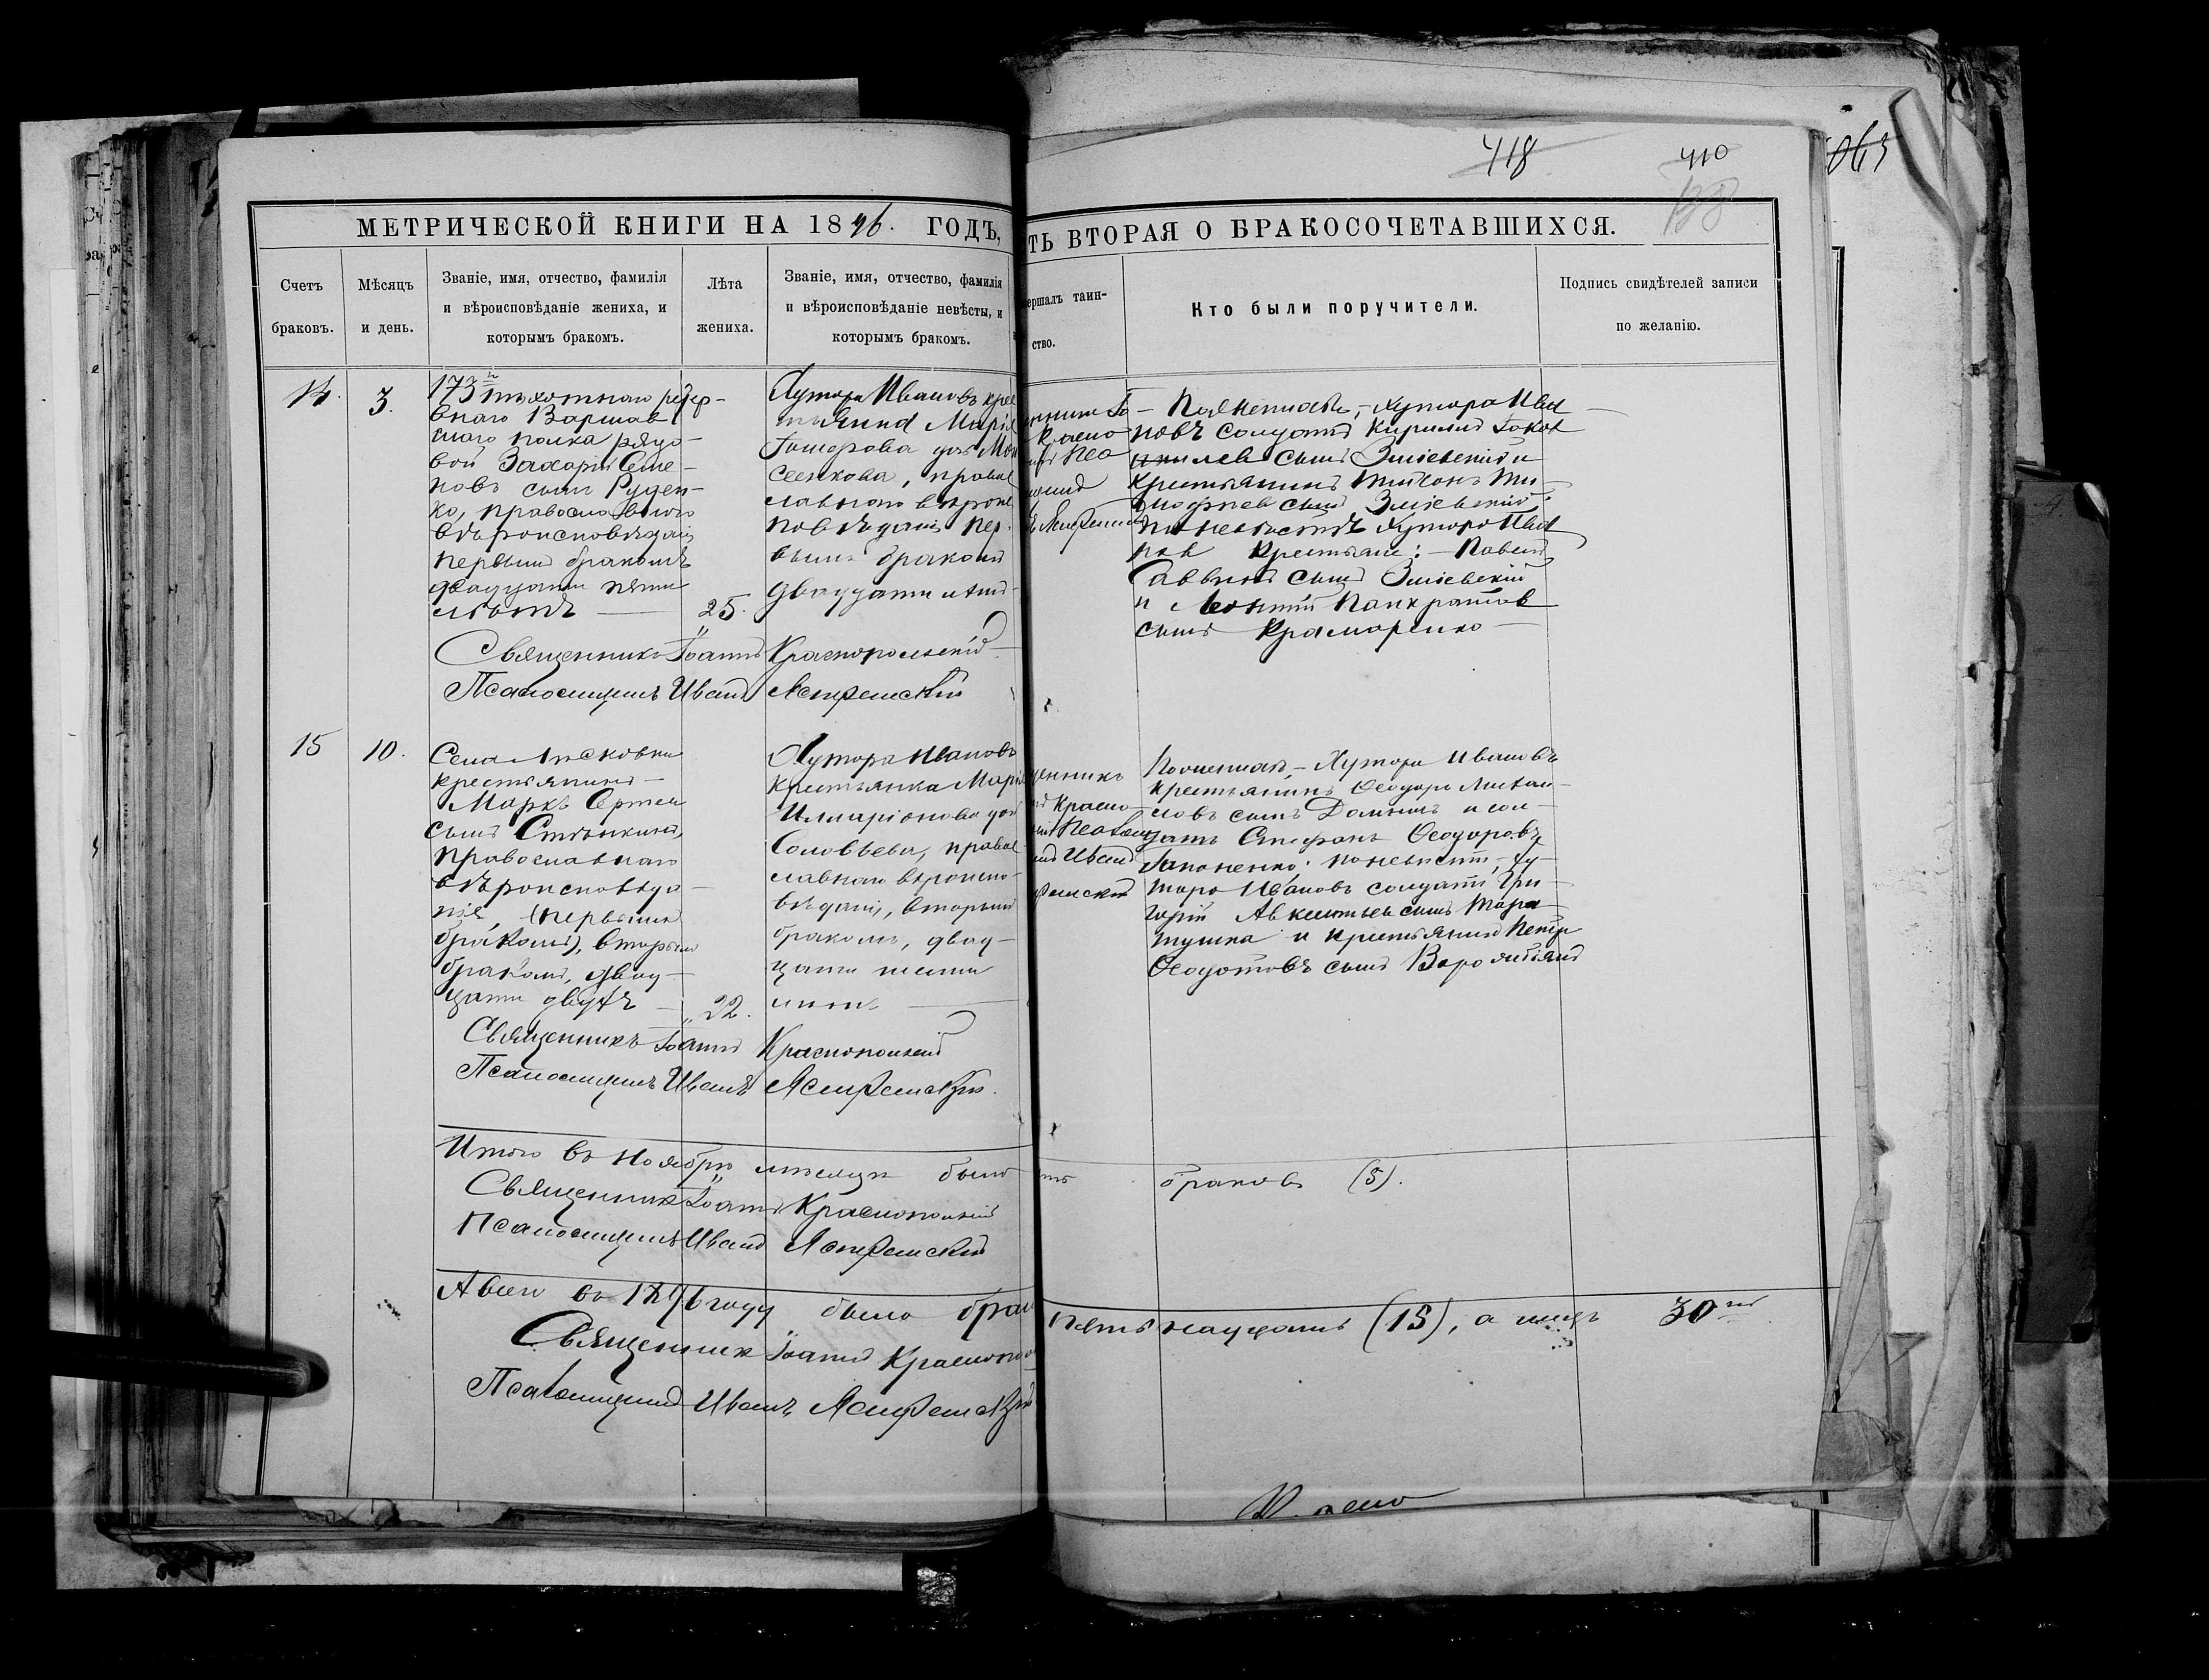 418
410
138
МЕТРИЧЕСКОЙ КНИГИ НА 1896. ГОДЪ,
ТЬ ВТОРАЯ О БРАКОСОЧЕТАВШИХСЯ.
Счетъ
браковъ.
Мѣсяцъ
и день.
Званіе, имя, отчество, фамилія
и вѣроисповѣданіе жениха, и
которымъ бракомъ.
Лѣта
жениха.
Званіе, имя, отчество, фамилія
и вѣроисповѣданіе невѣсты, и
которымъ бракомъ.
ершалъ таин-
ство.
Кто были поручители.
Подпись свидѣтелей записи
по желанію.
14.
3.
173 пѣхотнаго резер-
внаго Варшав
скаго полка рядо-
вой Захарій Семе-
новъ сынъ Руден-
ко, православнаго
вѣроисповѣданія
первымъ бракомъ
двадцати пяти
лѣтъ
25.
Хутора Ивановъ кре
Марія
дочь Мои
сеенкова, правос
лавнаго вѣроис
повѣданія, пер-
вымъ бракомъ
двадцати лѣтъ
Хутора Ива
новъ солдатъ Кирилъ
сынъ Зміевскій и
крестьянинъ Ти
мофеевъ сынъ Зміевскій;
по невѣстѣ Хутора Ива
новъ крестьяне: Павелъ
Саввинъ сынъ Зміевскій
и Леонтій Панкратовъ
сынъ Крамаренко
Священникъ Іоаннъ Краснопольскій
Псаломщикъ Иванъ Ястремскій
15
10.
Села Лисковки
крестьянинъ
Маркъ
сынъ
православнаго
вѣроисповѣда-
нія, (первымъ
бракомъ), вторымъ
бракомъ, двад-
цати двухъ
22.
Хутора Ивановъ
крестьянка Марія
Илларіонова доч
Соловьева, правос-
лавнаго вѣроиспо-
вѣданія, вторымъ
бракомъ, двад-
цати шести
лѣтъ
Хутора Ивановъ
крестьянинъ Ѳеодоръ Михаи-
ловъ сынъ и сол-
датъ Стефанъ Ѳеодоровъ
Гапоненко; по невѣстѣ, Ху-
тора Ивановъ солдатъ Гри-
горій сынъ Тара
тушка и крестьянинъ Петръ
Ѳеодотовъ сынъ
Священникъ Іоаннъ Краснопольскій
Псаломщикъ Иванъ Ястремскій.
Итого въ ноябрѣ мѣсяцѣ было
браковъ (5).
Священникъ Іоаннъ Краснопольскій
Псаломщикъ Иванъ Ястремскій
А всего въ 1896 году было брак
пятнадцать (15), а лицъ 30
Священникъ Іоаннъ Краснопо
Псаломщикъ Иванъ Ястремскій